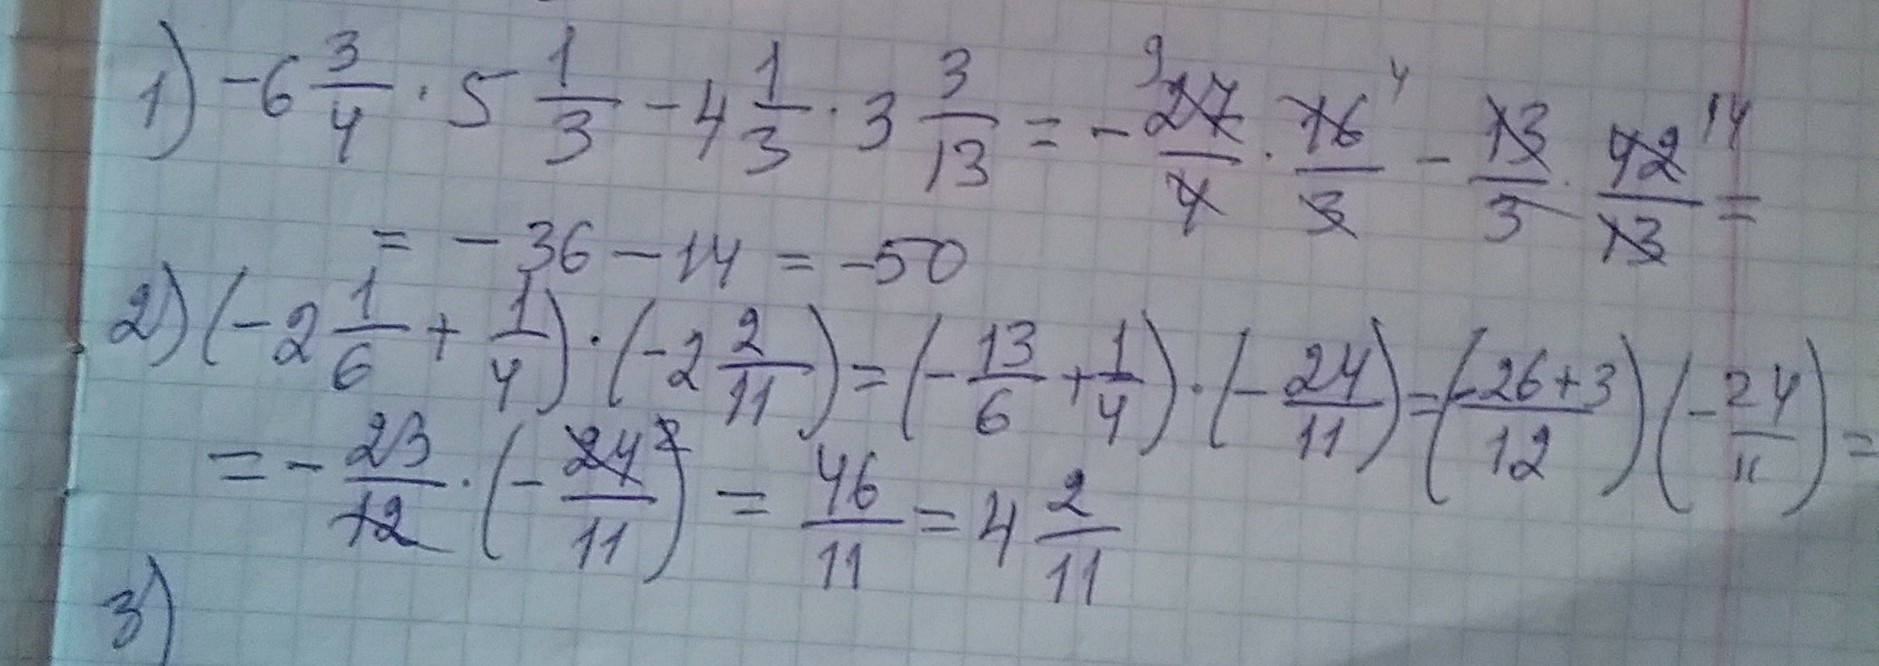 1) -6 3/4 · 5 1/3 - 4 1/3 · 3 3/13 = - 27/4 · 16/3 - 13/3 · 42/13 = 9 4 14
= -36 - 14 = -50
2) (-2 1/6 + 1/4) · (-2 2/11) = (- 13/6 + 1/4) · (- 24/11) = (-26+3/12) (- 24/11) =
= - 23/12 · (- 24/11) 2 = 46/11 = 4 2/11
3)